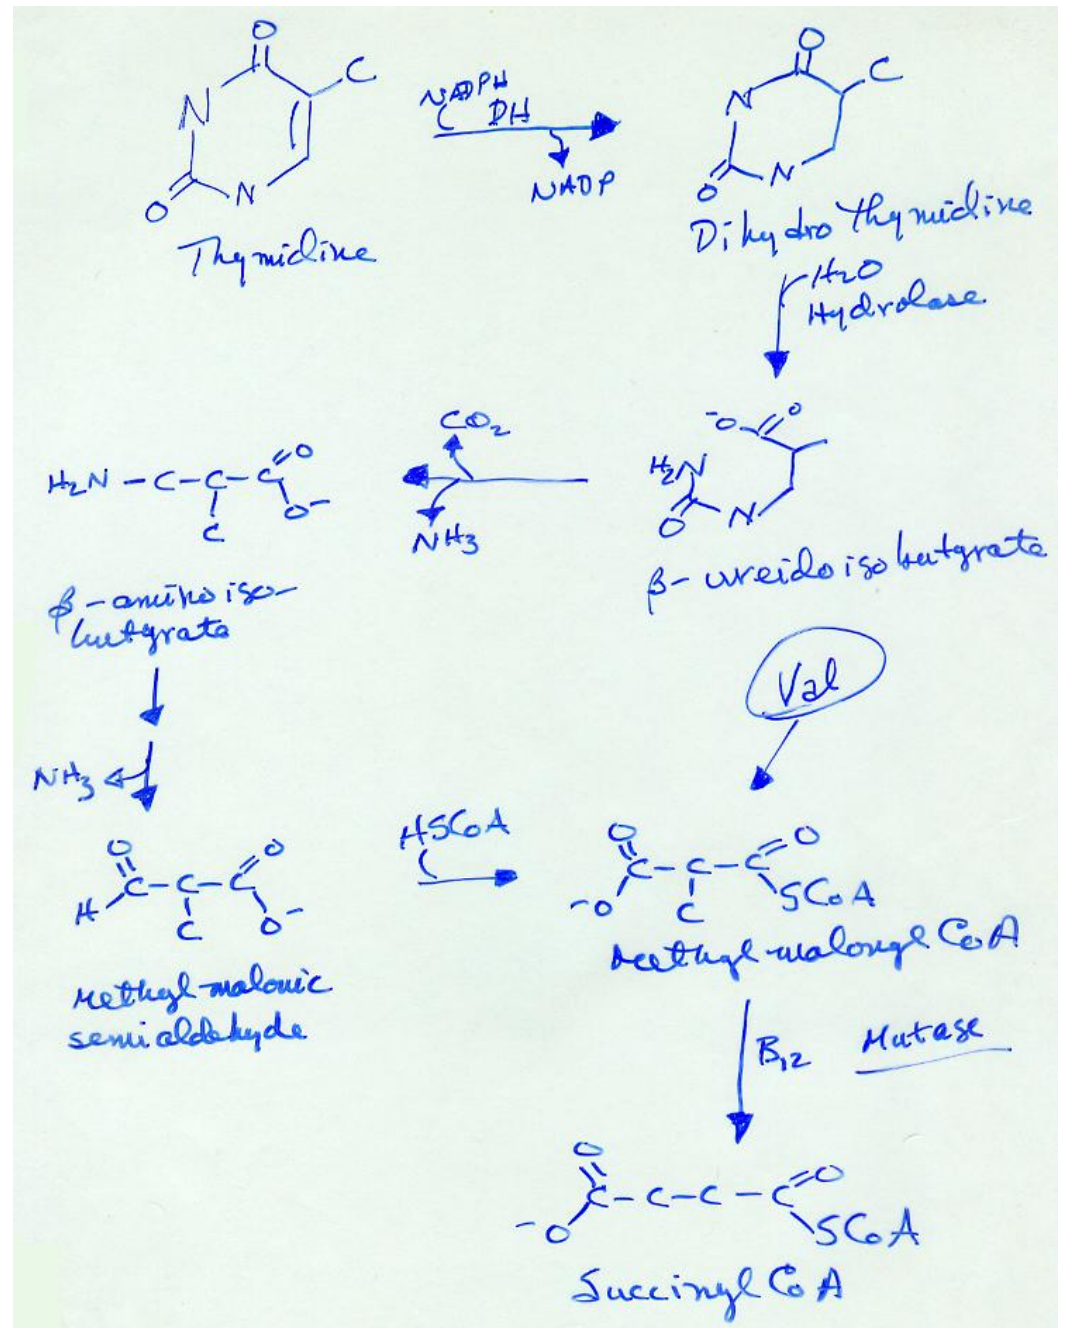 O
N
C
N
O
Thymidine
NADPH
DH
NADP
O
N
C
N
O
Dihydro thymidine
H2O
Hydrolase
-O O
H2N
O N
β-ureidoisobutyrate
CO2
NH3
H2N - C - C - C O
C O-
β-aminoiso-
butyrate
NH3
O O
H C - C - C
C O-
Methyl-malonic
semialdehyde
HSCoA
Val
O O
C - C - C
-O C SCoA
Methyl-malonyl CoA
B12 Mutase
O O
C - C - C - C
-O SCoA
Succinyl CoA